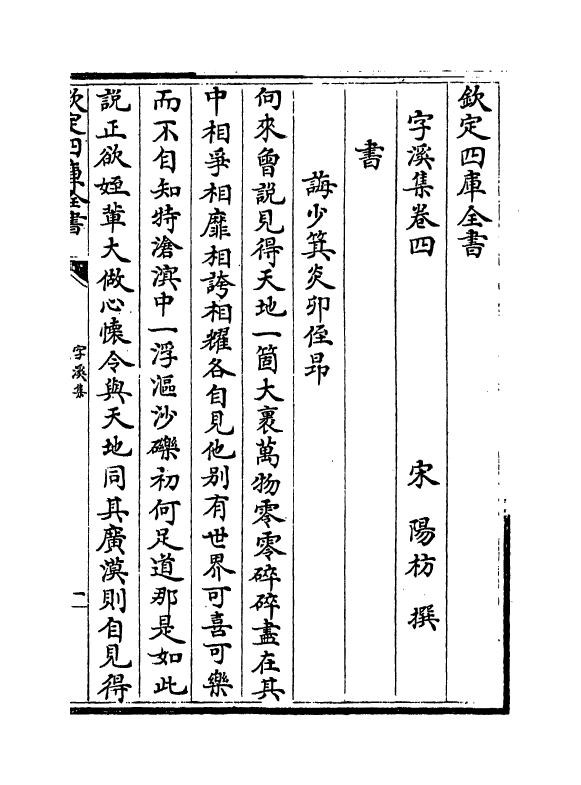 欽定四庫全書
字溪集卷四
宋 陽枋 撰
書
誨少箕炎卯侄昂
向來曾説見得天地一箇大裹萬物零零碎碎盡在其
中相爭相靡相誇相耀各自見他别有世界可喜可樂
而不自知特滄溟中一浮漚沙礫初何足道那是如此
説正欲姪軰大做心懐令與天地同其廣漠則自見得
欽定四庫全書
字溪集